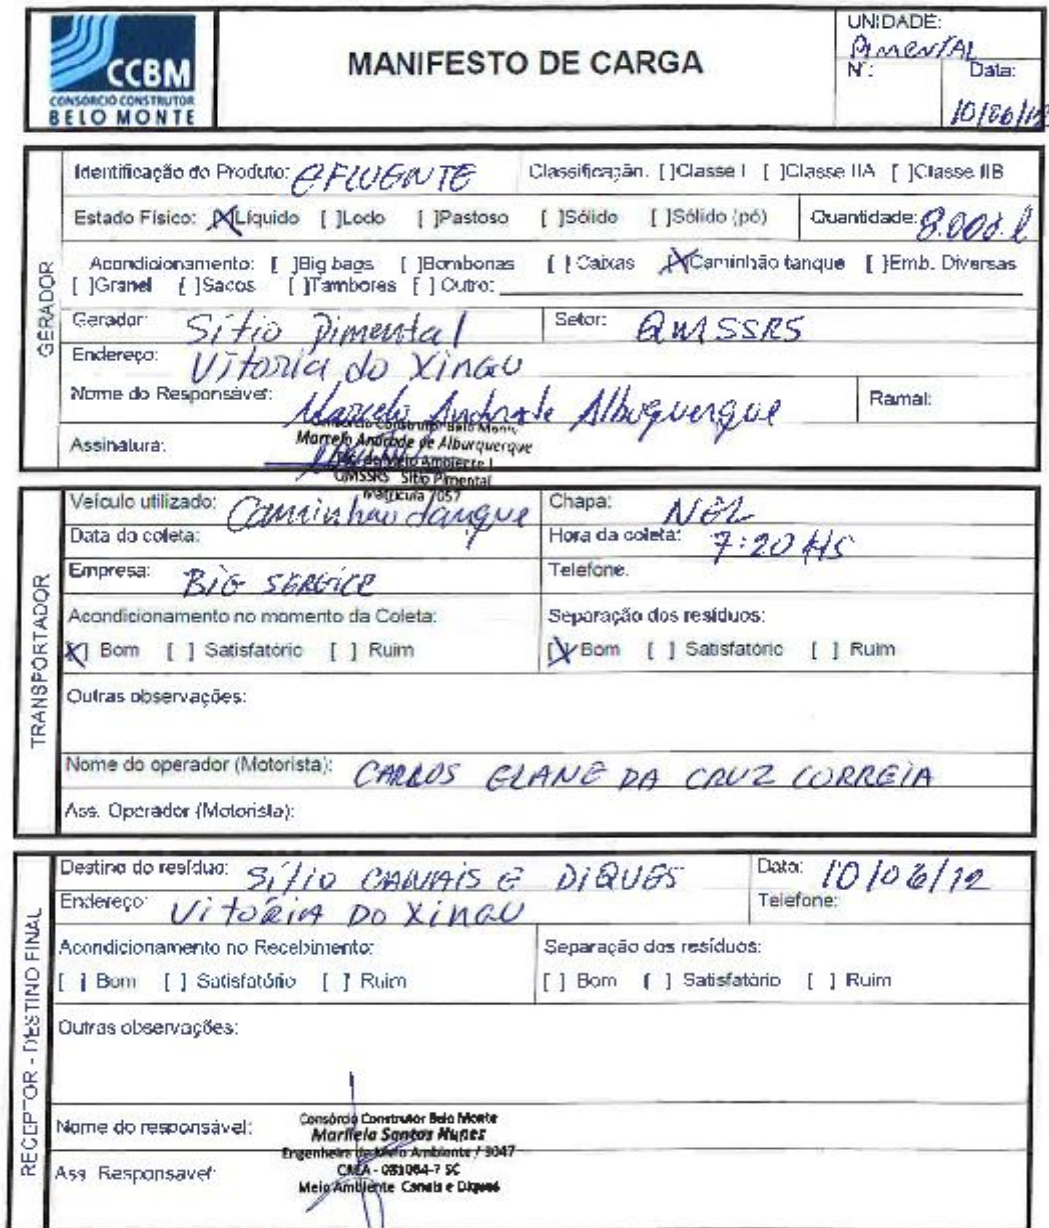 CCBM
CONSÓRCIO CONSTRUTOR
BELO MONTE
MANIFESTO DE CARGA
UNIDADE:
Pimental
N°: Data:
10/06/12
GERADOR
Identificação do Produto: EFLUENTE Classificação. [ ]Classe I [ ]Classe IIA [ ]Classe IIB
Estado Físico: [X]Líquido [ ]Lodo [ ]Pastoso [ ]Sólido [ ]Sólido (pó) Quantidade: 8.000 l
Acondicionamento: [ ]Big bags [ ]Bombonas [ ] Caixas [X]Caminhão tanque [ ]Emb. Diversas
[ ]Granel [ ]Sacos [ ]Tambores [ ] Outro:
Gerador: Sítio Pimental Setor: QMSSRS
Endereço: Vitoria do Xingu
Nome do Responsável: Marcelo Andrade Albuquerque Ramal:
Consórcio Construtor Belo Monte
Assinatura: Marcelo Andrade de Alburquerque
de Meio Ambiente I
GMSSRS Sítio Pimental
Matrícula 7057
TRANSPORTADOR
Veículo utilizado: Caminhão tanque Chapa: NEL
Data da coleta: Hora da coleta: 7:20 HS
Empresa: BIG SERVICE Telefone:
Acondicionamento no momento da Coleta: Separação dos resíduos:
[X] Bom [ ] Satisfatório [ ] Ruim [X] Bom [ ] Satisfatório [ ] Ruim
Outras observações:
Nome do operador (Motorista): CARLOS ELANE DA CRUZ CORREIA
Ass. Operador (Motorista):
RECEPTOR - DESTINO FINAL
Destino do resíduo: Sítio CANAIS E DIQUES Data: 10/06/12
Endereço: VITÓRIA DO XINGU Telefone:
Acondicionamento no Recebimento: Separação dos resíduos:
[ ] Bom [ ] Satisfatório [ ] Ruim [ ] Bom [ ] Satisfatório [ ] Ruim
Outras observações:
Consórcio Construtor Belo Monte
Nome do responsável: Mariela Santos Nunes
Engenheira de Meio Ambiente / 3047
CREA - 081064-7 SC
Ass. Responsavel: Meio Ambiente Canais e Diques